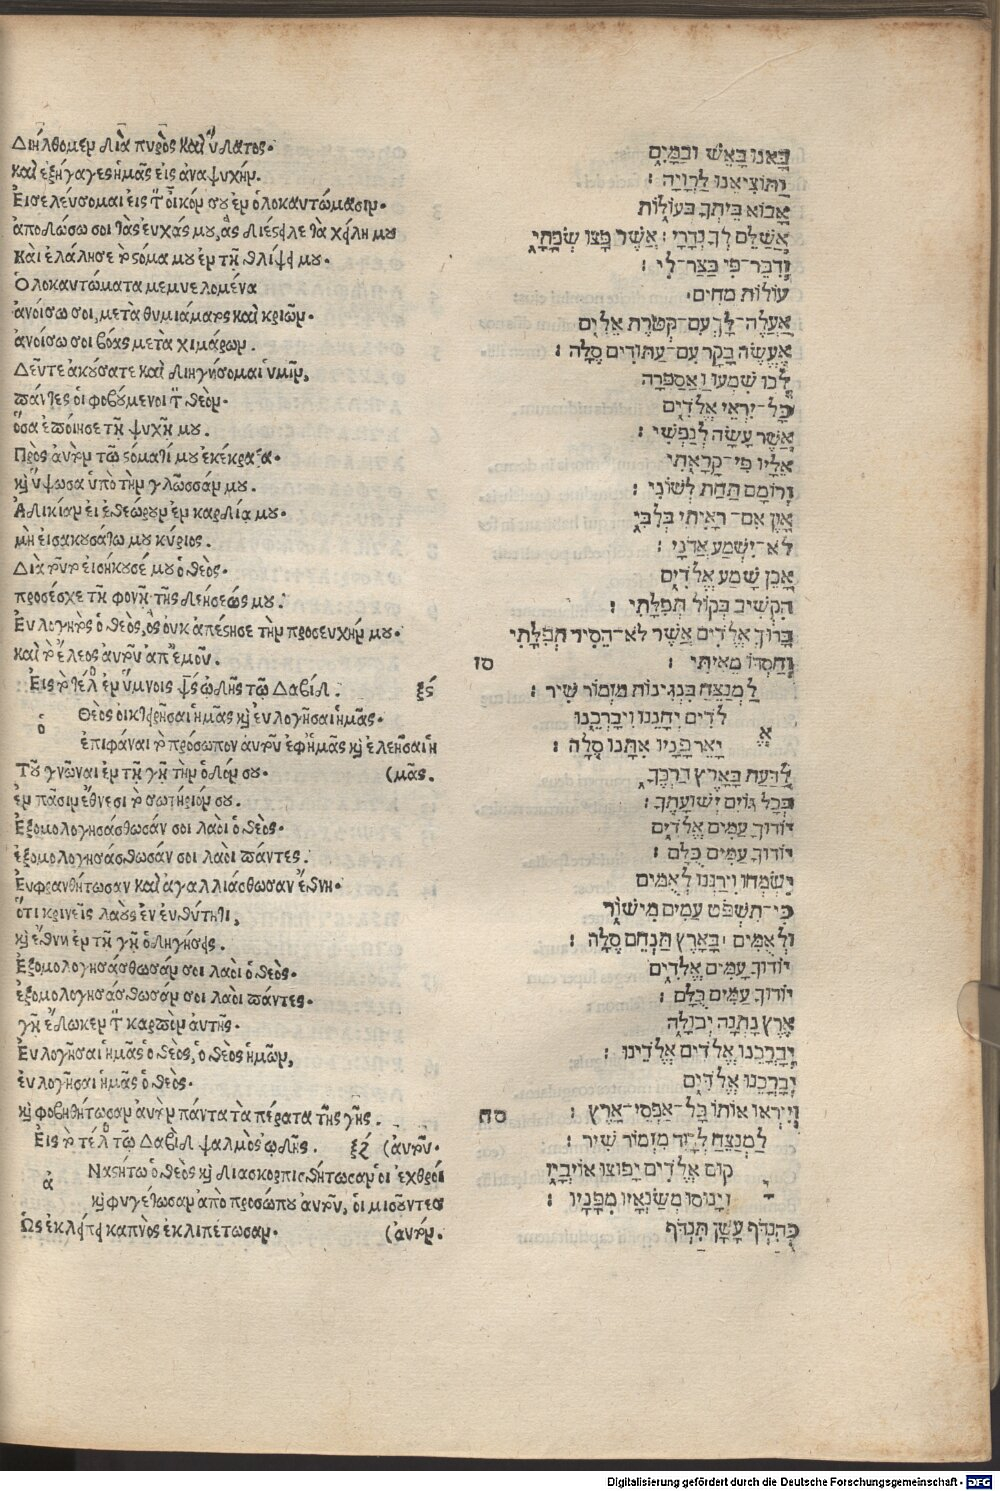 Διήλθομεν διὰ πυρὸς καὶ ὕδατος·
καὶ ἐξήγαγες ἡμᾶς εἰς ἀναψυχήν.
Εἰσελεύσομαι εἰς τὸν οἶκόν σου ἐν ὁλοκαυτώμασιν·
ἀποδώσω σοι τὰς εὐχάς μου, ἃς διέστειλε τὰ χείλη μου
Καὶ ἐλάλησε τὸ στόμα μου ἐν τῇ θλίψει μου·
Ὁλοκαυτώματα μεμυελομένα
ἀνοίσω σοι, μετὰ θυμιάματος καὶ κριῶν·
ἀνοίσω σοι βόας μετὰ χιμάρων.
Δεῦτε ἀκούσατε καὶ διηγήσομαι ὑμῖν,
πάντες οἱ φοβούμενοι τὸν θεόν·
ὅσα ἐποίησε τῇ ψυχῇ μου.
Πρὸς αὐτὸν τῷ στόματί μου ἐκέκραξα·
καὶ ὕψωσα ὑπὸ τὴν γλῶσσάν μου.
Ἀδικίαν εἰ ἐθεώρουν ἐν καρδία μου·
μὴ εἰσακουσάτω μου κύριος.
Διὰ τοῦτο εἰσήκουσέ μου ὁ θεὸς·
προσέσχε τῇ φονῇ τῆς δεήσεώς μου.
Ἐυλογητὸς ὁ θεὸς, ὃς οὐκ ἀπέστησε τὴν προσευχήν μου·
καὶ τὸ ἔλεος αὐτοῦ ἀπ' ἐμοῦ.
Ἐις τὸ τέλος ἐν ὕμνοις ψαλμὸς ᾠδῆς τῷ Δαβὶδ. ξϛ
Θεὸς οἰκτειρῆσαι ἡμᾶς καὶ ἐυλογῆσαι ἡμᾶς·
ὁ
ἐπιφάναι τὸ πρόσωπον αὐτοῦ ἐφ' ἡμᾶς καὶ ἐλεῆσαι ἡ
Τοῦ γνῶναι ἐν τῇ γῇ τὴν ὁδόν σου· (μᾶς.
ἐν πᾶσιν ἔθνεσι τὸ σωτήριόν σου.
Ἐξομολογησάσθωσάν σοι λαοὶ ὁ θεὸς·
ἐξομολογησάσθωσάν σοι λαοὶ πάντες.
Ἐυφρανθήτωσαν καὶ ἀγαλλιάσθωσαν ἔθνη·
ὅτι κρινεῖς λαοὺς ἐν ἐυθύτητι,
καὶ ἔθνη ἐν τῇ γῇ ὁδηγήσεις.
Ἐξομολογησάσθωσάν σοι λαοὶ ὁ θεὸς·
ἐξομολογησάσθωσάν σοι λαοὶ πάντες·
γῆ ἔδωκεν τὸν καρπὸν αὐτῆς·
Ἐυλογῆσαι ἡμᾶς ὁ θεὸς, ὁ θεὸς ἡμῶν,
ἐυλογῆσαι ἡμᾶς ὁ θεὸς·
καὶ φοβηθήτωσαν αὐτὸν πάντα τὰ πέρατα τῆς γῆς.
Ἐις τὸ τέλος τῷ Δαβὶδ ψαλμὸς ᾠδῆς. ξζ (αὐτοῦ·
Ναστήτω ὁ θεὸς καὶ διασκορπισθήτωσαν οἱ ἐχθροὶ
ἀ
καὶ φυγέτωσαν ἀπὸ προσώπου αὐτοῦ, ὁι μισοῦντες
Ὡς ἐκλείπει καπνὸς ἐκλιπέτωσαν· (αὐτὸν.
בָּאנוּ בָאֵשׁ וּבַמַּיִם
וַתּוֹצִיאֵנוּ לָרְוָיָה :
אָבוֹא בֵיתְךָ בְּעוֹלוֹת
אֲשַׁלֵּם לְךָ נְדָרָי : אֲשֶׁר פָּצוּ שְׂפָתָי
וְדִבֶּר־פִּי בַּצַּר־לִי :
עוֹלוֹת מֵחִים·
אַעֲלֶה־לָּךְ עִם־קְטֹרֶת אֵלִים
אֶעֱשֶׂה בָקָר עִם־עַתּוּדִים סֶלָה :
לְכוּ שִׁמְעוּ וַאֲסַפְּרָה
כָּל־יִרְאֵי אֱלֹדִים
אֲשֶׁר עָשָׂה לְנַפְשִׁי :
אֵלָיו פִּי־קָרָאתִי
וְרוֹמַם תַּחַת לְשׁוֹנִי :
אָוֶן אִם־רָאִיתִי בְלִבִּי
לֹא־יִשְׁמַע אֲדֹנָי :
אָכֵן שָׁמַע אֱלֹדִים
הִקְשִׁיב בְּקוֹל תְּפִלָּתִי :
בָּרוּךְ אֱלֹדִים אֲשֶׁר לֹא־הֵסִיר תְּפִלָּתִי
וְחַסְדּוֹ מֵאִיתִּי : סז
לַמְנַצֵּחַ בִּנְגִינוֹת מִזְמוֹר שִׁיר :
לֹדִים יְחָנֵּנוּ וִיבָרְכֵנוּ
אֱ
יָאֵר פָּנָיו אִתָּנוּ סֶלָה :
לָדַעַת בָּאָרֶץ דַּרְכֶּךָ
בְּכָל גּוֹיִם יְשׁוּעָתֶךָ :
יוֹדוּךָ עַמִּים אֱלֹדִים
יוֹדוּךָ עַמִּים כֻּלָּם :
יִשְׂמְחוּ וִירַנְּנוּ לְאֻמִּים
כִּי־תִשְׁפֹּט עַמִּים מִישׁוֹר
וּלְאֻמִּים ׀ בָּאָרֶץ תַּנְחֵם סֶלָה :
יוֹדוּךָ עַמִּים אֱלֹדִים
יוֹדוּךָ עַמִּים כֻּלָּם :
אֶרֶץ נָתְנָה יְבוּלָהּ
יְבָרְכֵנוּ אֱלֹדִים אֱלֹדֵינוּ :
יְבָרְכֵנוּ אֱלֹדִים
וְיִירְאוּ אוֹתוֹ כָּל־אַפְסֵי־אָרֶץ : סח
לַמְנַצֵּחַ לְדָוִד מִזְמוֹר שִׁיר :
קוּם אֱלֹדִים יָפוּצוּ אוֹיְבָיו
יָ
וְיָנוּסוּ מְשַׂנְאָיו מִפָּנָיו :
כְּהִנְדֹּף עָשָׁן תִּנְדֹּף
Digitalisierung gefördert durch die Deutsche Forschungsgemeinschaft - DFG